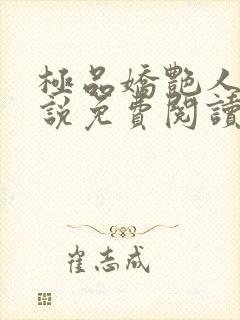 極品嬌艷人
說免費閱讀
崔志成